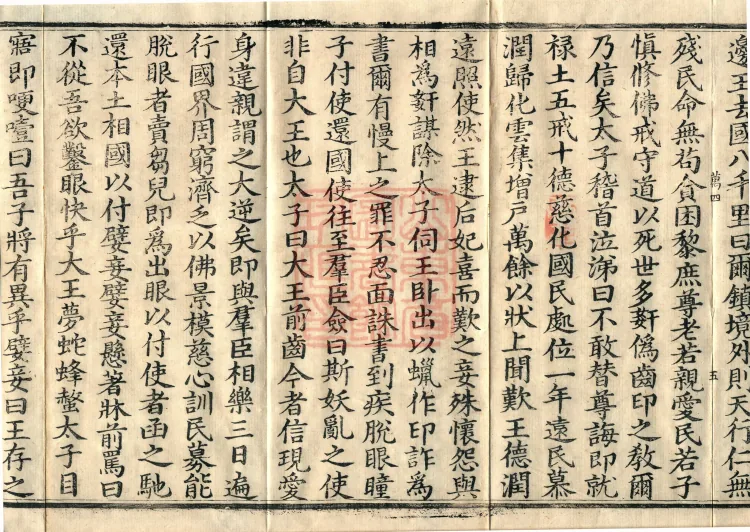 邊王去國八千里曰爾鎮境外則天行仁無
殘民命無苟貪困黎庶尊老若親愛民若子
愼修佛戒守道以死世多姧僞齒印之教爾
乃信矣太子稽首泣涕曰不敢替尊誨即就
祿土五戒十德慈化國民處位一年遠民慕
潤歸化雲集增戶萬餘以狀上聞歎王德潤
遠照使然王逮后妃喜而歎之妾殊懷怨與
相爲姧謀除太子伺王臥出以蠟作印詐爲
書爾有慢上之罪不忍面誅書到疾脫眼瞳
子付使還國使往至羣臣僉曰斯妖亂之使
非自大王也太子曰大王前齒今者信現愛
身違親謂之大逆矣即與羣臣相樂三日遍
行國界周窮濟乏以佛景模慈心訓民募能
脫眼者賣芻兒即爲出眼以付使者函之馳
還本土相國以付嬖妾嬖妾懸著牀前罵曰
不從吾欲鑿眼快乎大王夢蛇蜂螫太子目
寤即哽噎曰吾子將有異乎嬖妾曰王存之
萬四
五